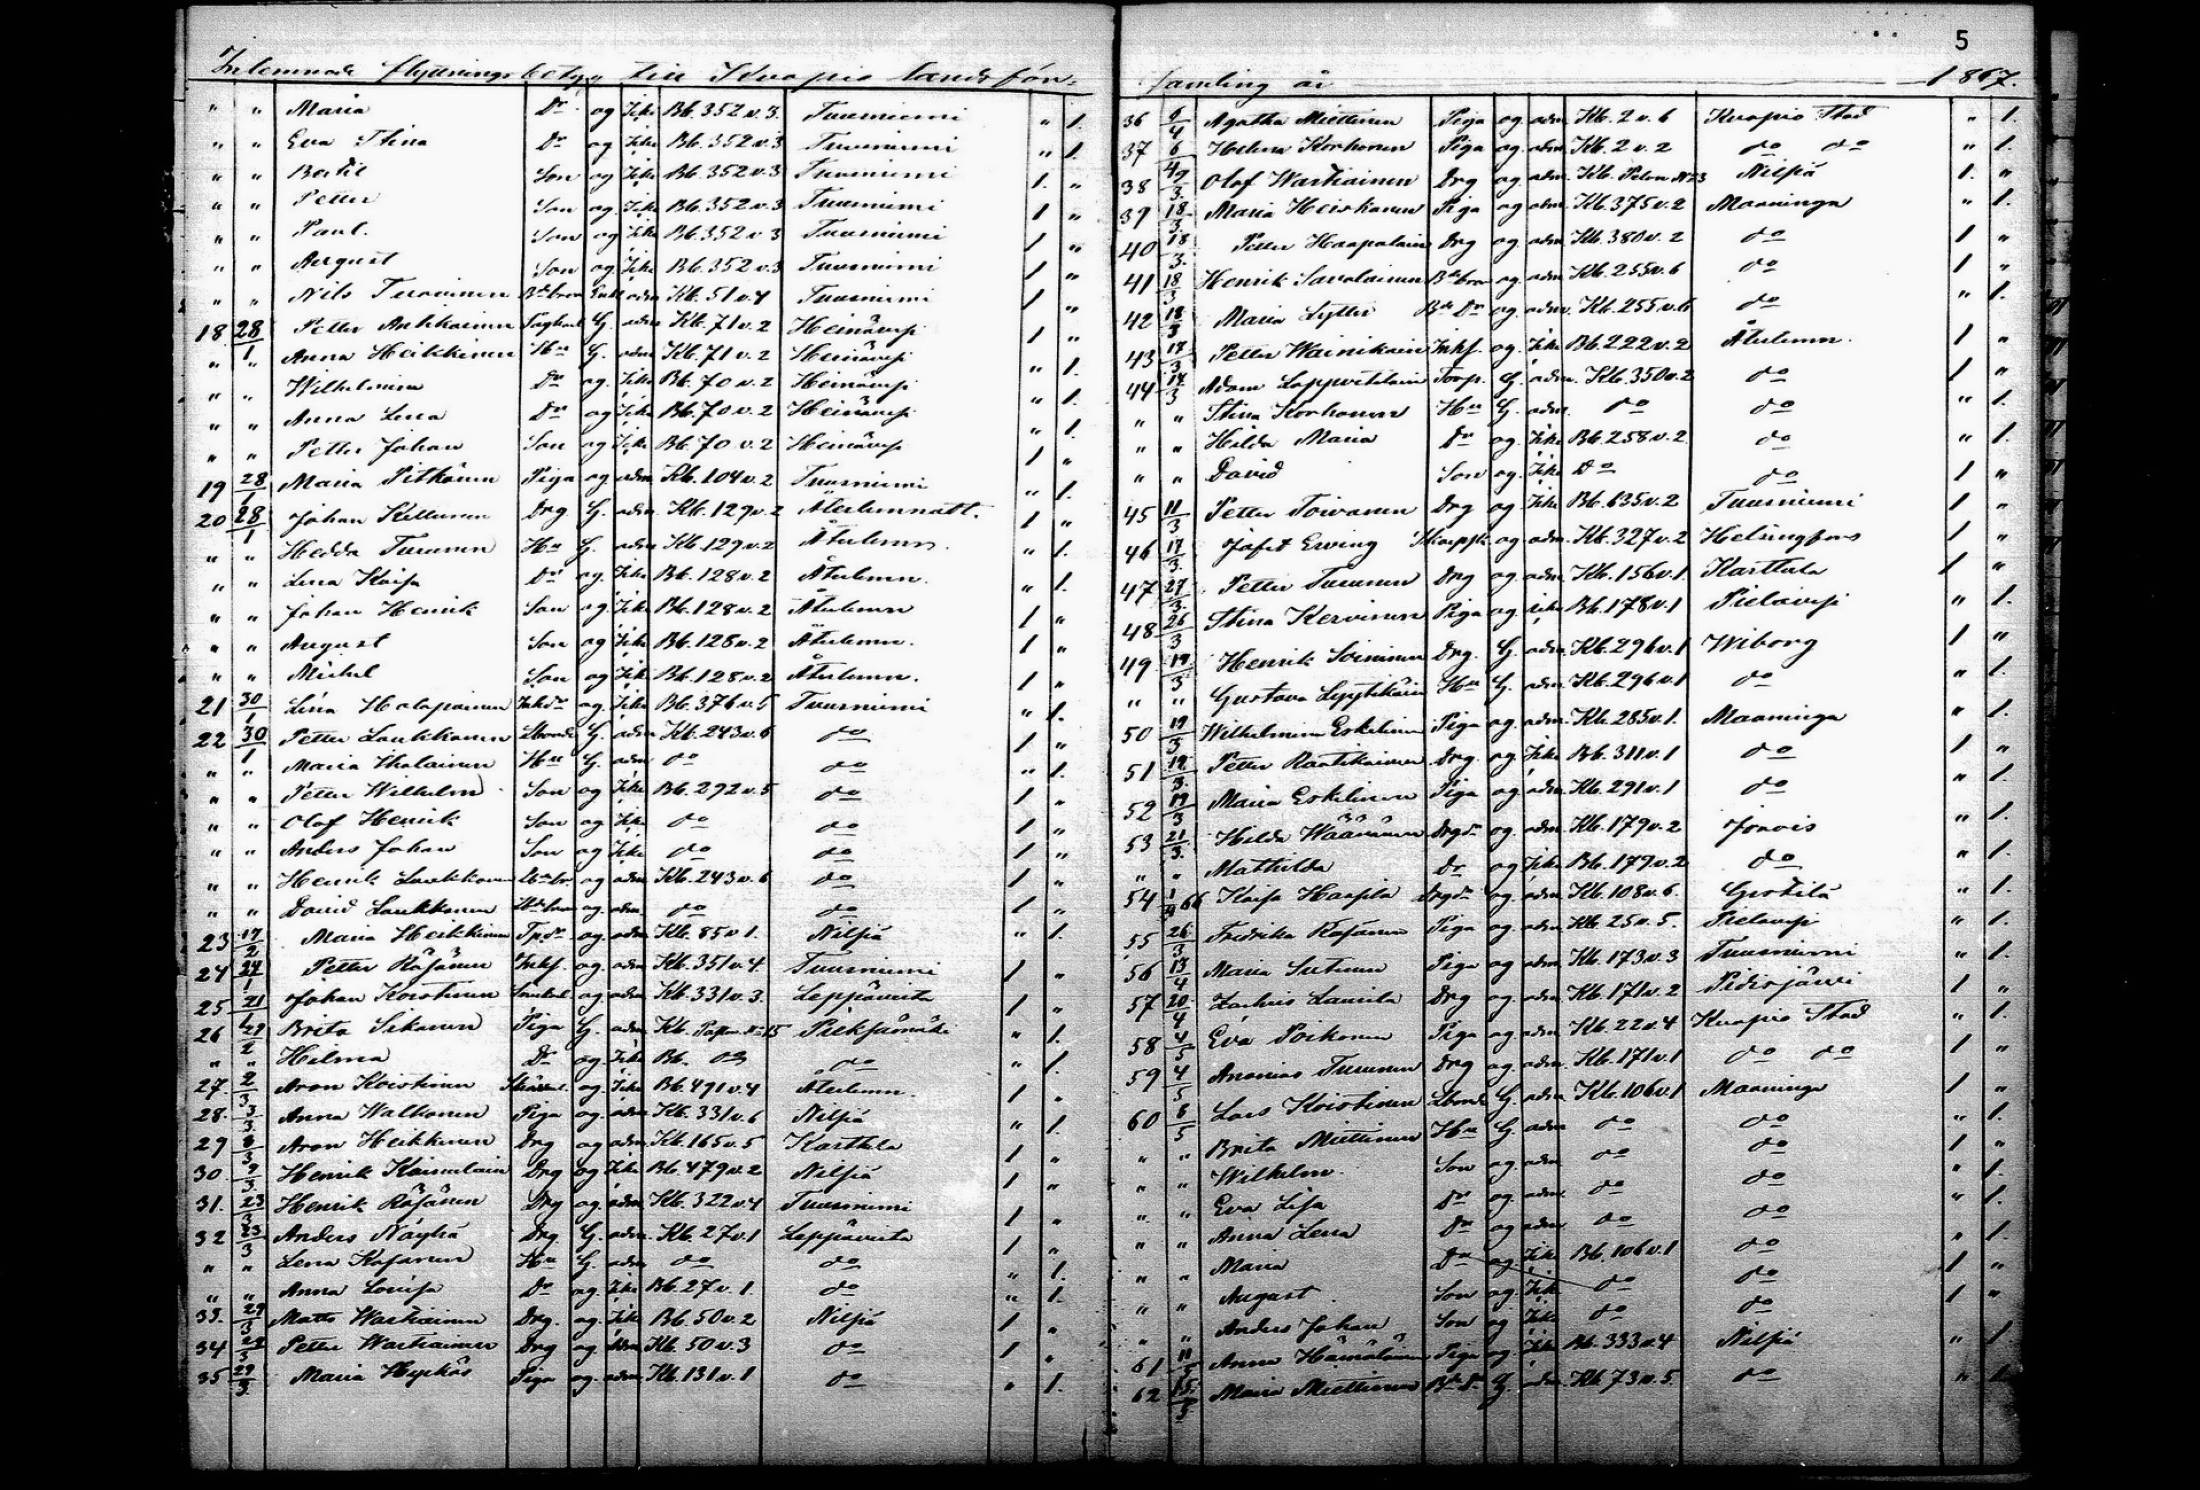 Inlemnade flyttningsbetyg till Kuopio landsför-
" " Maria Dr og Icke Bb. 352 v. 3. Tuusniemi " 1.
" " Eva Stina Dr og Icke Bb. 352 v. 3 Tuusniemi " 1.
" " Bertil Son og Icke Bb. 352 v. 3 Tuusniemi 1. "
" " Petter Son og Icke Bb. 352 v. 3 Tuusniemi 1 "
" " Paul. Son og Icke Bb. 352 v. 3 Tuusniemi 1 "
" " August Son og Icke Bb. 352 v. 3 Tuusniemi 1 "
" " Nils Turuinen Enkl adm Kb. 51 v. 4 Tuusniemi 1 "
18 28/1 Petter Ankkuinen G. adm Kb. 71 v. 2 Heinävesi 1 "
" " Anna Heikkinen Hu G. adm. Kb. 71 v. 2 Heinävesi " 1.
" " Wilhelmina Dr og. Icke Bb. 70 v. 2 Heinävesi " 1.
" " Anna Lena Dr og Icke Bb. 70 v. 2 Heinävesi " 1.
" " Petter Johan Son og Icke Bb. 70 v. 2 Heinävesi 1 "
19 28/1 Maria Pitkänen Piga og adm. Kb. 104 v. 2 Tuusniemi " 1.
20 28/1 Johan Kettunen Drg G. adm. Kb. 129 v. 2 Återlemnatt. 1 "
" " Hedda Turunen Hu G. adm Kb. 129 v. 2 Återlemn. " 1.
" " Lena Kaisa Dr og. Icke Bb. 128 v. 2 Återlemn. " 1.
" " Johan Henrik Son og. Icke Bb. 128 v. 2 Återlemn 1 "
" " August Son og Icke Bb. 128 v. 2 Återlemn. 1 "
" " Michel Son og Icke Bb. 128 v. 2 Återlemn. 1 "
21 30/1 Lena Halapainen og. Icke Bb. 376 v. 5 Tuusniemi " 1.
22 30/1 Petter Laukkanen G. adm Kb. 243 v. 6 do 1 "
" " Maria Ihalainen Hu G. adm do do " 1.
" " Petter Wilhelm Son og Icke Bb. 292 v. 5 do 1 "
" " Olof Henrik Son og Icke do do 1 "
" " Anders Johan Son og Icke do do 1 "
" " Henrik Laukkanen og adm Kb. 243 v. 6 do 1 "
" " David Laukkanen og adm. do do 1 "
23 17/2 Maria Heikkinen og. adm Kb. 85 v 1. Nilsiä " 1.
24 24/1 Petter Räsänen Inhs. og. adm Kb. 351 v. 4. Tuusniemi 1 "
25 21/1 Johan Koistinen og adm Kb. 331 v. 3. Leppävirta 1 "
26 27/2 Brita Sikanen Piga G. adm Kb. Pieksämäki " 1.
" " Hilma Dr og. Icke Bb. do do " 1.
27. 2/3 Aron Koistinen og. Icke Bb. 491 v. 4 Återlemn. 1 "
28. 3/3 Anna Walkonen Piga og. adm Kb. 331 v. 6 Nilsiä " 1.
29 6/3 Aron Heikkinen Drg og adm Kb. 165 v. 5 Karttula 1 "
30. 9/3 Henrik Kainulain Drg og Icke Bb. 479 v. 2 Nilsiä 1 "
31. 23/3 Henrik Räsänen Drg og. adm Kb. 322 v. 4 Tuusniemi 1 "
32 23/3 Anders Näyhä Drg G. adm. Kb. 27 v. 1 Leppävirta 1 "
" " Lena Kasanen Hu G. adm do do " 1.
" " Anna Lovisa Dr og. Icke Bb. 27 v. 1. do " 1.
33. 29/3 Matts Wartiainen Drg. og. Icke Bb. 50 v. 2 Nilsiä 1 "
34 29/3 Petter Wartiainen Drg og adm Kb. 50 v. 3 do 1 "
35 29/3 Maria Hyrkäs Piga og. adm. Kb. 131 v. 1 do " 1.
5
samling år 1867.
36 Agatha Miettinen Piga og. adm. Kb. 2 v. 6 Kuopio Stad " 1.
37 6/4 Helena Korhonen Piga og. adm. Kb. 2 v. 2 do do " 1.
38 Olof Wartiainen Drg og. adm. Kb. Nilsiä 1. "
39 18/3 Maria Heiskanen Piga og. adm. Kb. 375 v. 2 Maaninga " 1.
40 18/3 Petter Haapalain Drg og. adm. Kb. 380 v. 2 do 1 "
41 18/3 Henrik Savolainen og adm. Kb. 255 v. 6 do 1 "
42 18/3 Maria Lytter og. adm. Kb. 255 v. 6 do " 1.
43 Petter Wainikain Inhs. og. Icke Bb. 222 v. 2 Återlemn. 1 "
44 14/3 Adam Lappvetelain Torp. G. adm. Kb. 350 v. 2 do 1 "
" " Stina Korhonen Hu G. adm. do do " 1.
" " Hilda Maria Dr og Icke Bb. 258 v. 2. do " 1.
" " David Son og. Icke Do do 1 "
45 11/3 Petter Toivanen Drg og Icke Bb. 135 v. 2 Tuusniemi 1 "
46 17/3 Jafet Erving og adm. Kb. 327 v. 2 Helsingfors 1 "
47 27/3 Petter Turunen Drg og adm. Kb. 156 v. 1. Karttula 1 "
48 26/3 Stina Kervinen Piga og. Icke Bb. 178 v. 1 Pielavesi " 1.
49. 19/3 Henrik Soininen Drg. G. adm. Kb. 296 v. 1 Wiborg 1 "
" " Gustava Hu G. adm. Kb. 296 v. 1 do " 1.
50 19/3 Wilhelmina Eskelinen Piga og. adm. Kb. 285 v. 1. Maaninga " 1.
51 19/3 Petter Raatikainen Drg. og Icke Bb. 311 v. 1 do 1 "
52 19/3 Maria Eskelinen Piga og adm. Kb. 291 v. 1 do " 1.
53 21/3. Hilda Väänänen og. adm. Kb. 179 v. 2 Jorois " 1.
" " Mathilda Dr og Icke Bb. 179 v. 2 do " 1.
54 66 Kaisa Haapla og adm Kb. 108 v. 6. " 1.
55 26/3 Fredrika Räsänen Piga og. adm Kb. 25 v. 5. Pielavesi " 1.
56 13/4 Maria Sutinen Piga og adm Kb. 173 v. 3 Tuusniemi " 1.
57 20/4 Zachris Laurila Drg og adm Kb. 171 v. 2 Pidisjärvi 1 "
58 4/5 Eva Poikonen Piga og adm Kb. 22 v. 4 Kuopio Stad " 1.
59 4/5 Ananias Turunen Drg og. adm Kb. 171 v. 1 do do 1 "
60 6/5 Lars Koistinen G. adm. Kb. 106 v. 1 Maaninga 1 "
" " Brita Miettinen Hu G. adm do do " 1.
" " Wilhelm. Son og adm. do do 1 "
" " Eva Lisa Dr og adm. do do " 1.
" " Anna Lena Dr og adm. do do " 1.
" " Maria Dr og Icke Bb. 106 v. 1 do " 1.
" " August. Son og. Icke do do 1 "
" " Anders Johan Son og Icke do do 1 "
61 11/5 Anna Hämäläinen Piga og. Icke Bb. 333 v. 4 Nilsiä " 1.
62 15/5 Maria Miettinen G. adm. Kb. 73 v. 5. do " 1.